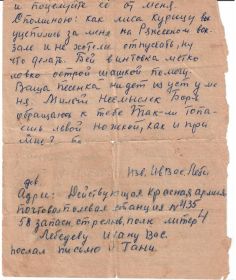 и поцелуйте её от меня.
Опомнюю: как лиса курицу вы
упустили за меня на Рязнесном вок
зале и не хотели отпускать, ну
что делать. Бей винтовка метко
ловко острой шашкой полощи
Ваша песенка нидет из уст у ме
ня. Милый Боря
обращаюсь к тебе Так-ли Топа
ешь левой ножкой, как и при
мне?
Адрес: Действующая Красная армия
почтовополевая станция №435
58 запасн. стрелков. полк литер 4
Лебедеву Ивану Вас.
послал письмо и Тани.